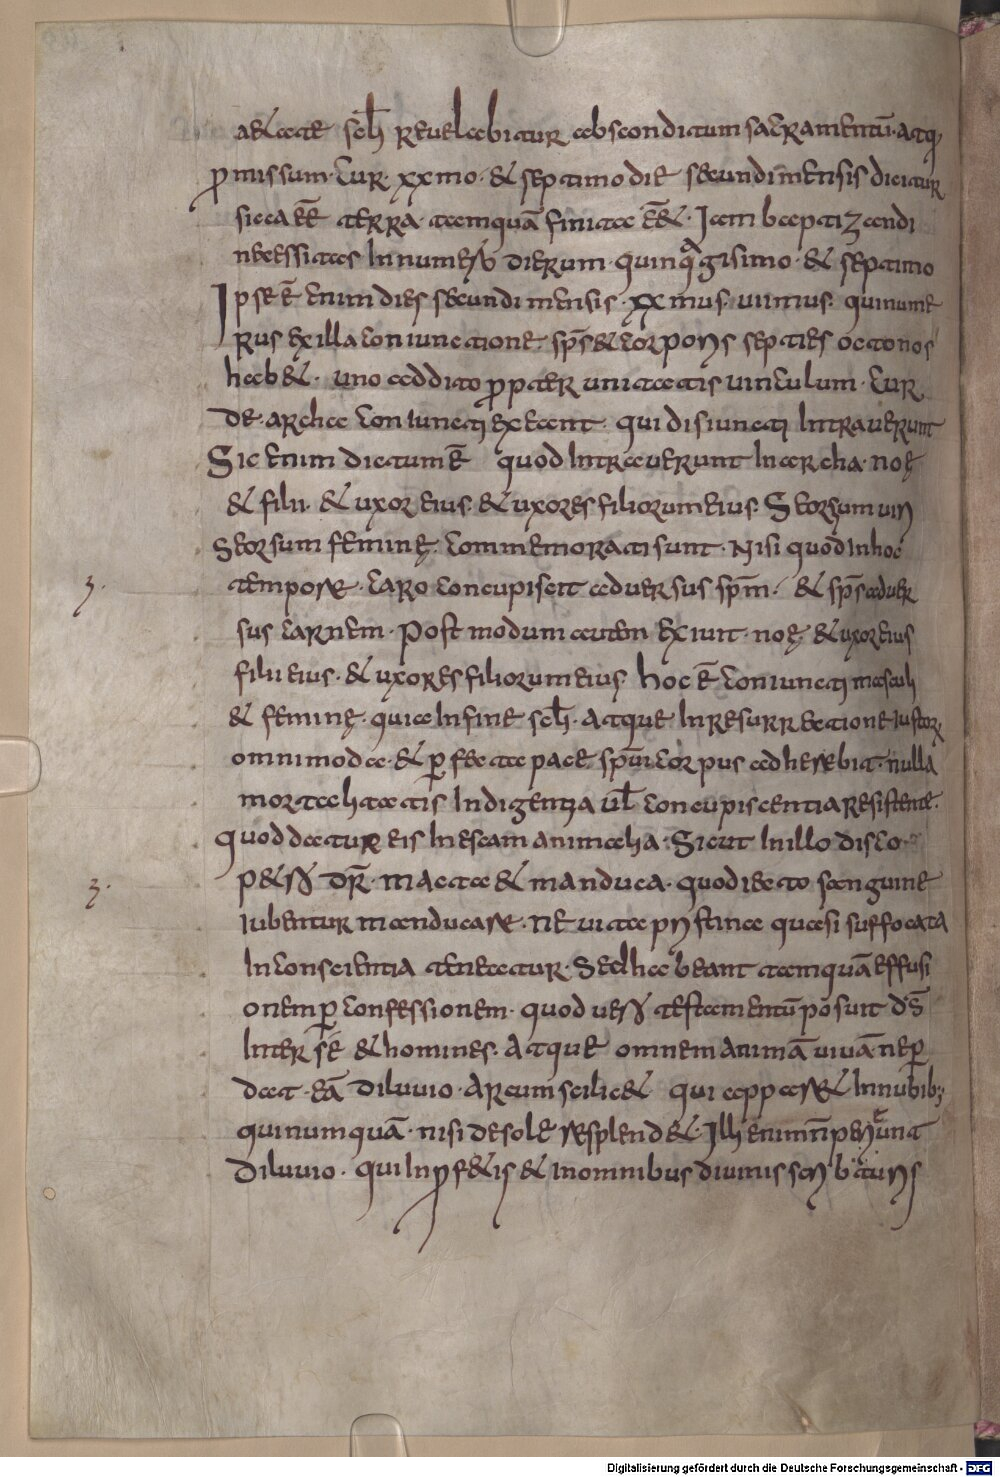 aetate sclī reuelabitur absconditum sacramentū · atq;
p̄missum · Cur · xxmo · & septimo die secundi mensis dicitur
sicca eē terra · tamquā finita eēt · Iam baptizandi
necessitas In numero dierum · quinquagisimo · & septimo
Ipse ē enim dies secundi mensis · xxmus · uiimus · quinume
rus ex illa coniunctione · sp̄s & corporis septies octonos
hab& · uno addito propter unitatis uinculum · Cur
de · archa coniuncti exeant · qui disiuncti Intrauerunt
Sic enim dictum ē quod Intrauerunt In archa · noę
& filii · & uxor eius · & uxores filiorum eius · Seorsum uiri
Seorsum feminę · Commemorati sunt · Nisi quod In hoc
tempore · Caro concupiscit aduersus sp̄m · & sp̄s aduer
sus carnem · Post modum autem exiuit · noę & uxor eius
filii eius · & uxores filiorum eius hoc ē coniuncti masculi
& feminę · quia In fine sclī · Atque In resurrectione iustor
omnimoda · & p̄fecta pace sp̄ui corpus adherebit · nulla
mortalitatis Indigentia ul̄ concupiscentia resistente ·
Quod datur eis In escam animalia · Sicut In illo disco
p&ro dr̄ · macta & manduca · quod iacto sanguine
Iubentur manducare · ne uita pristina quasi suffocata
In conscientia teneatur · Sed habeant tamquā effusi
onem p̄ confessionem · quod uero testamentū posuit d̄s
Inter sé & homines · Atque omnem animā uiuā neper
dat · eā diluuio · Arcum scilic& qui appar& In nubib;
qui numquā · nisi de sole resplend& · Illi enim n̄ pereunt
diluuio · qui In prof&is & In omnibus diuinis scripturis
3·
3·
Digitalisierung gefördert durch die Deutsche Forschungsgemeinschaft - DFG